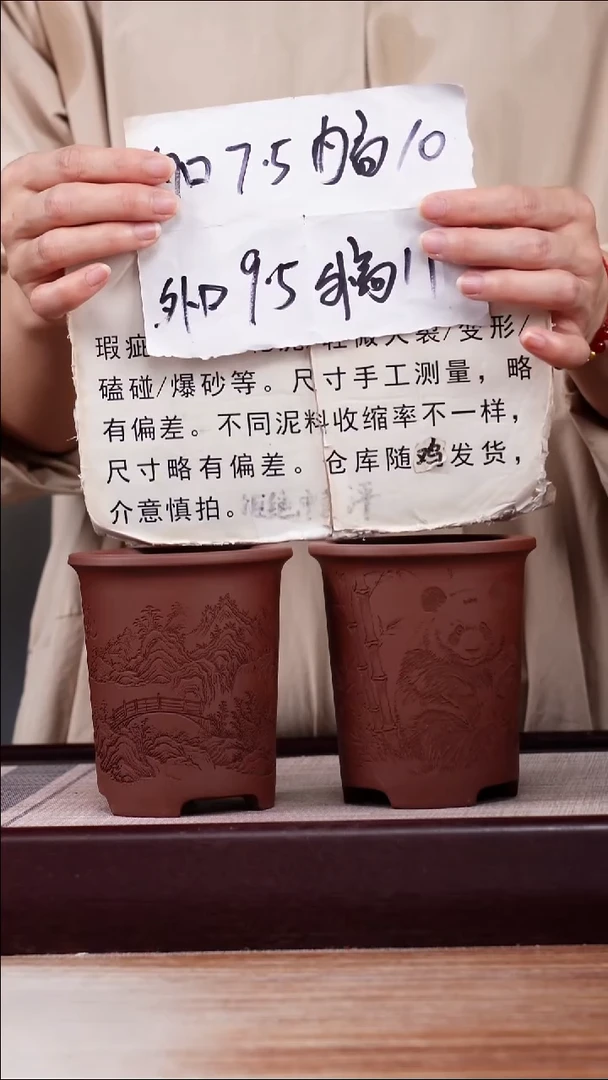 口 7.5 内高 10
外口 9.5 外高 11
瑕疵
磕碰/爆砂等。尺寸手工测量，略
有偏差。不同泥料收缩率不一样，
尺寸略有偏差。仓库随鸡发货，
介意慎拍。